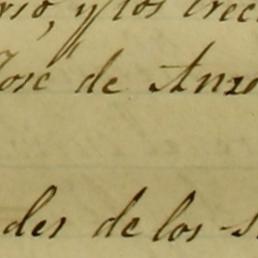 rio, y los trec
José de Anzo
des de los s